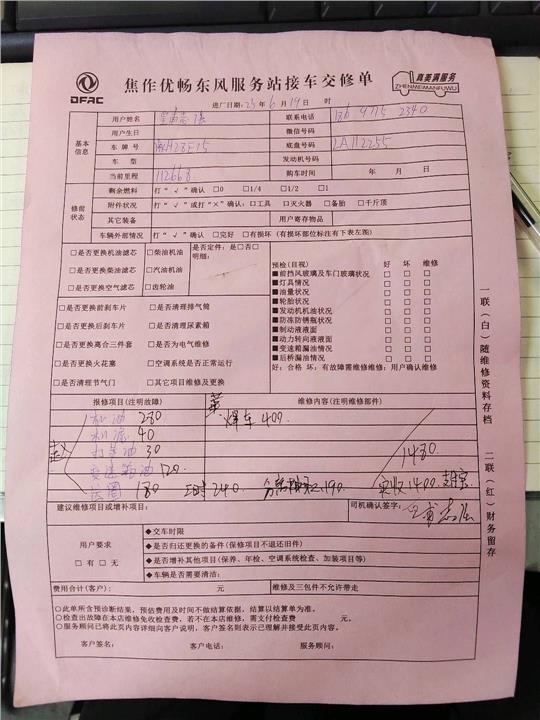 DFAC
焦作优畅东风服务站接车交修单
真美满服务
ZHENMEIMANFUWU
进厂日期:23年6月19日 时
基本信息
用户姓名
联系电话 186 9715 2340
用户生日
微信号码
车牌号
底盘号码 LA112255
车型
发动机号码
当前里程 112668
购车时间 年 月 日
修前状态
剩余燃料 打“√”确认 □0 □1/4 □1/2 □1
附件状况 打“√”或打“×”确认:□工具 □灭火器 □备胎 □千斤顶
其它装备 用户寄存物品
车辆外部情况 打“√”确认 □完好 □有损坏(有损坏部位标注有下表左图)
□是否更换机油滤芯 □柴油机油
□是否更换柴油滤芯 □汽油机油
□是否更换空气滤芯 □齿轮油
是否定件:是□否□
明细:
□是否更换前刹车片 □是否清理排气筒
□是否更换后刹车片 □是否清理尿素箱
□是否更换离合三件套 □是否为电气维修
□是否更换火花塞 □空调系统是否正常运行
□是否清理节气门 □其它项目维修及更换
预检(目视) 好 坏 维修
■前挡风玻璃及车门玻璃状况 □ □ □
■灯具情况 □ □ □
■油量状况 □ □ □
■轮胎状况 □ □ □
■发动机机油状况 □ □ □
■防冻防锈瓶状况 □ □ □
■制动液液面 □ □ □
■动力转向液液面 □ □ □
■变速箱漏油情况 □ □ □
■后桥漏油情况 □ □ □
好:合格 坏:有故障需维修维修:用户确认维修
报修项目(注明故障)
维修内容(注明维修部件)
机油 280
机滤 40
打黄油 30
变速箱油 120
180 工时 240
190
赵
焊车 400
1480
实收1400
建议维修项目或增补项目:
司机确认签字:
用户要求
□有 □无
◆交车时限
◆是否归还更换的备件(保修项目不退还旧件)
◆是否增补其他项目(保养、年检、空调系统检查、加装项目等)
◆车辆是否需要清洁:
费用合计(客户): 元
维修及三包件不允许带走
○此单所含预诊断结果,预估费用及时间不做结算依据,结算以结算单为准。
○检查出故障在本店维修免收检查费,若不在本店维修,需支付检查费 元。
○服务顾问已将此页内容详细向客户说明,客户签名则表示已理解并接受此页内容。
客户签名: 客户电话: 服务顾问:
一联(白)随维修资料存档
二联(红)财务留存